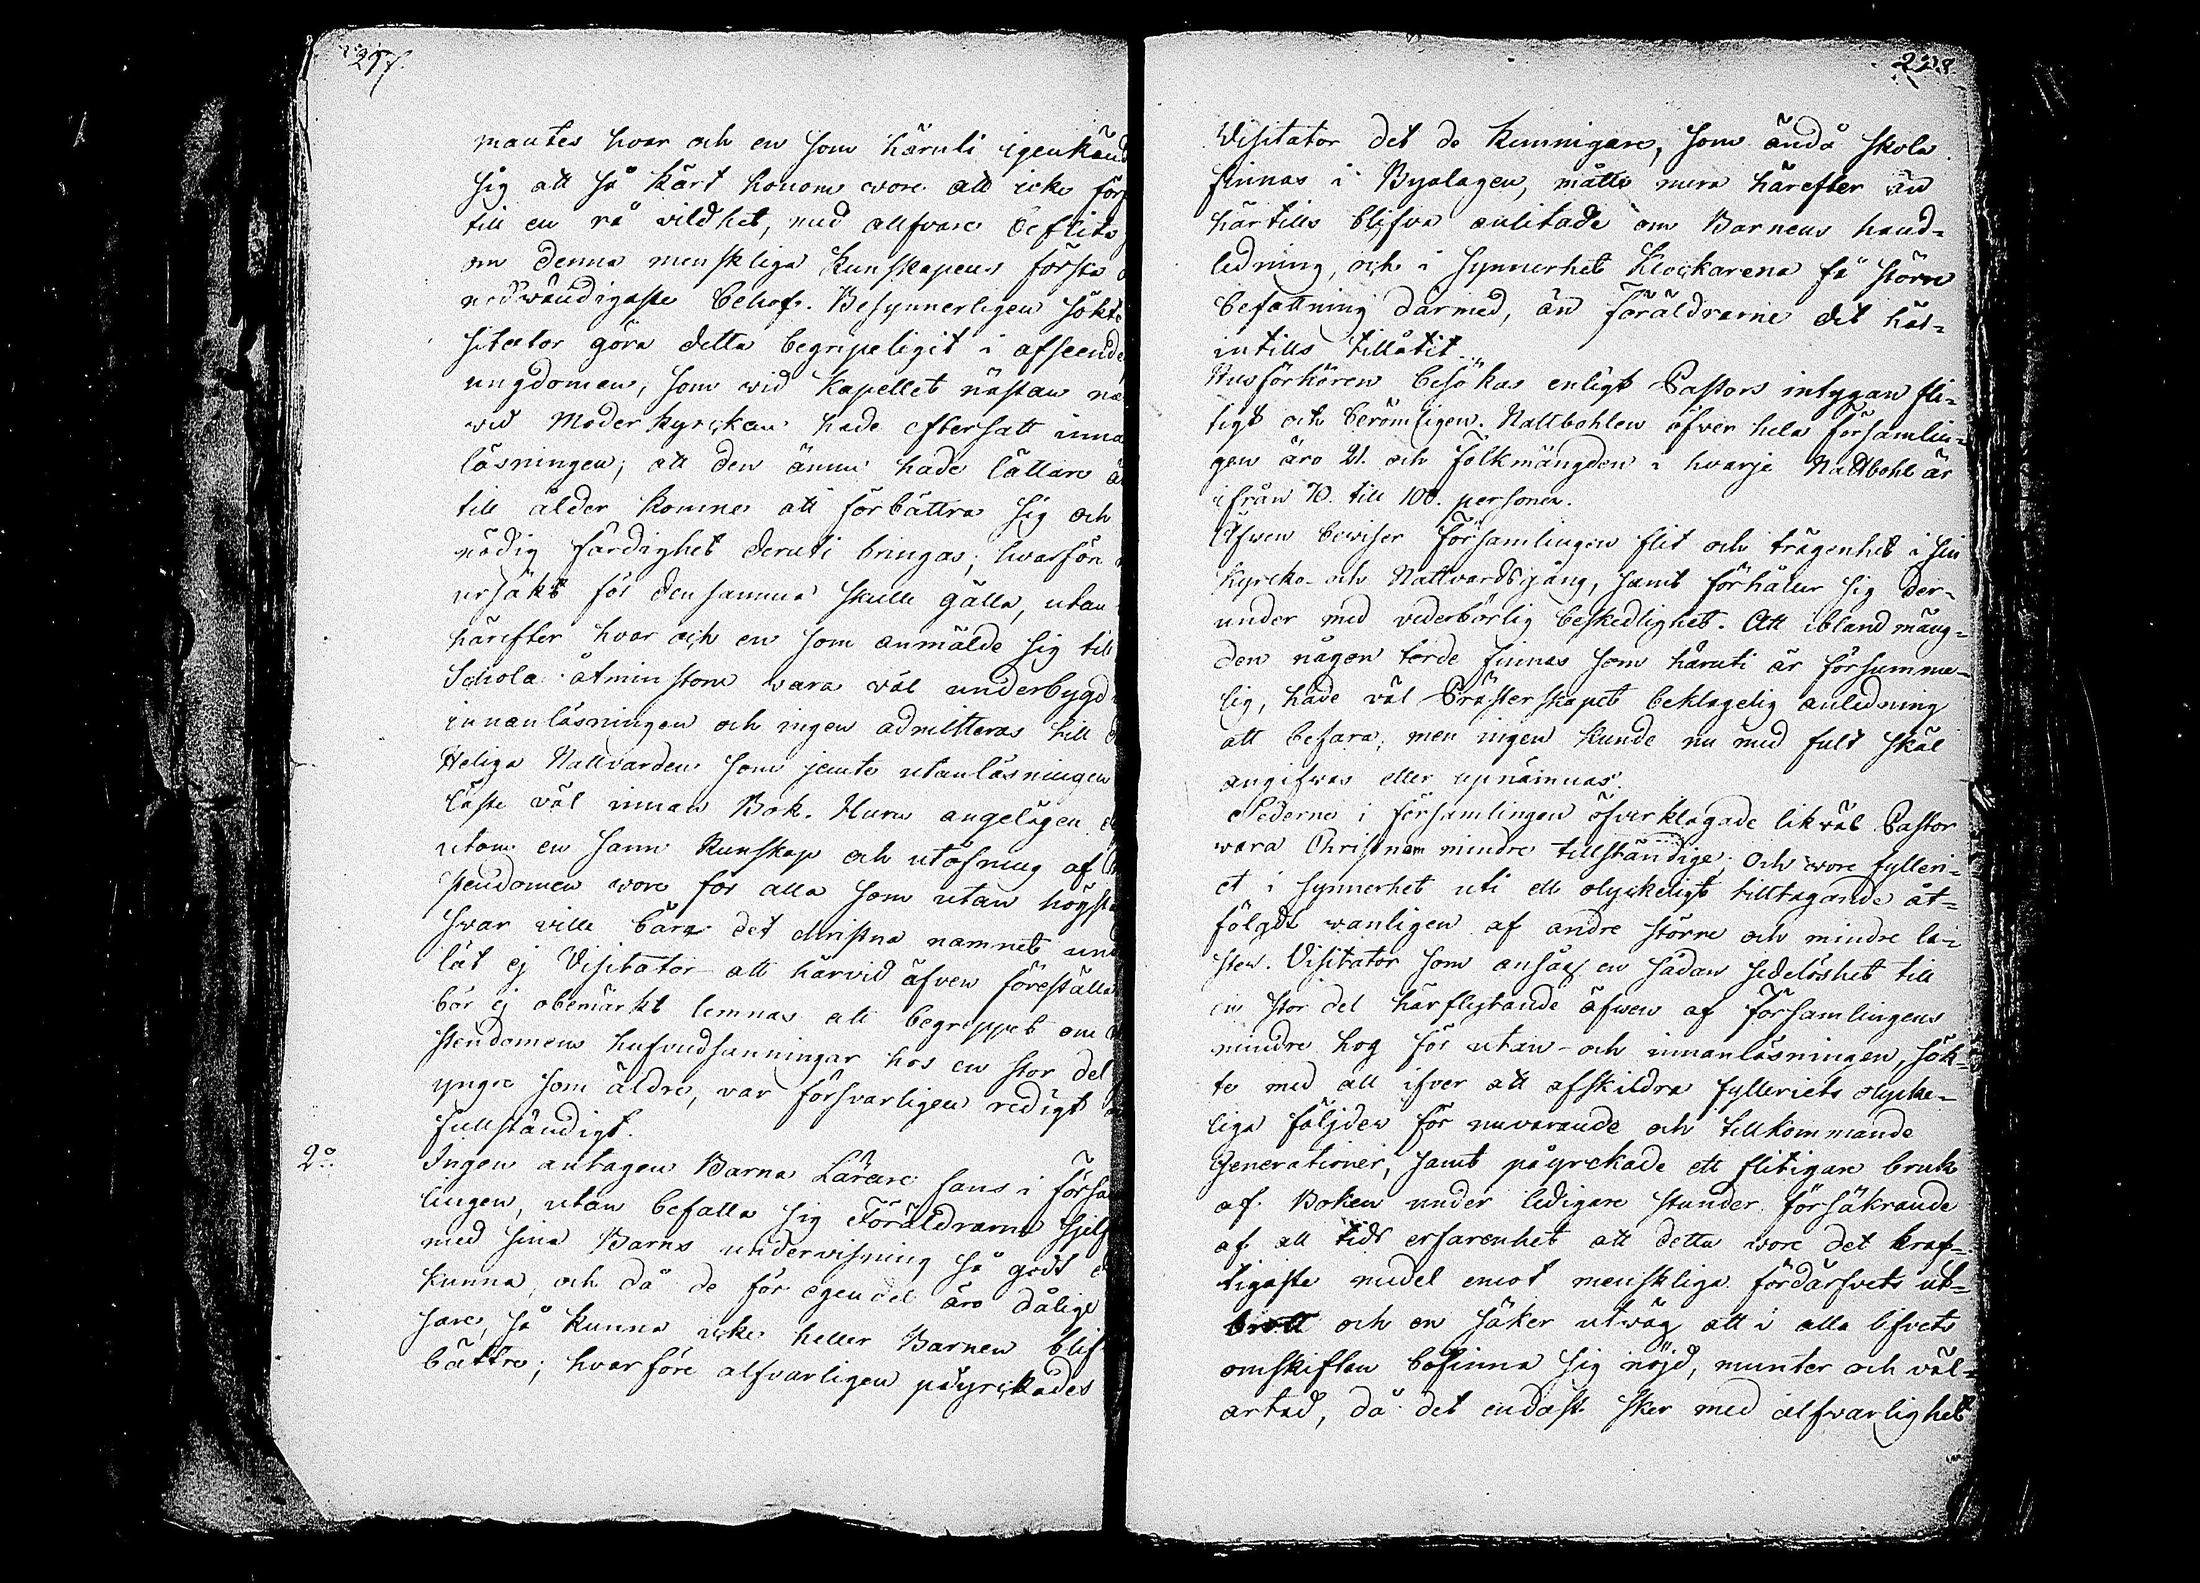 297.
mantes hvar och en som häruti igenkänd
sig att så kärt honom wore att icke förf
till en rå vildhet, med allfvare beflita
om denna menskliga kunskapens första
nödwändigaste behof. Besynnerligen sökte
sitator göra detta begripeligit i afseende
ungdomen, som wid Kapellet nästan
wid Moderkyrckan hade eftersatt inna
läsningen; att den ännu hade lättare ä
till ålder komne att förbättra sig och
nödig färdighet deruti bringas; hvarför
ursäkt för densamma skulle gälla, utan
härefter hvar och en som anmälde sig till
Schola åtminstone wara väl underbygd
innanläsningen och ingen admitteras till
Heliga Nattvarden som jemte utanläsningen
läste väl innan Bok. Huru angelägen
utom en sann kunskap och utöfning af
stendomen wore för alla som utan högsta
svar wille bära det christna namnet und
lät ej Visitator att härvid äfven föreställa
bör ej obemärkt lemnas att begreppet om
stendomens hufvudsanningar hos en stor del
yngre som äldre, var försvarligen redigt
fullständigt.
2o. Ingen antagen Barna Lärare fans i försa
lingen, utan befatta sig Föräldrarna sjelf
med sina Barns undervisning så godt
kunna, och då de för egen del äro dålige
sare, så kunna icke heller Barnen blif
bättre; hvarföre alfvarligen påyrckades
228.
Visitator det de kunnigare, som ändå skola
finnas i Byalagen, måtte mera härefter än
härtills blifva anlitade om Barnens hand-
ledning, och i synnerhet Klockarena få större
befattning därmed, än Föräldrarne det här-
intills tillåtit.
Husförhören besökas enligt Pastors intygan fli-
tigt och berömligen. Nattbohlen öfver hela församlin-
gen äro 21. och folkmängden i hvarje Nattbohl är
ifrån 70. till 100. personer.
Äfwen bewiser Församlingen flit och trägenhet i sin
Kyrcko- och Nattvardsgång, samt förhåller sig der-
under med vederbörlig beskedlighet. Att ibland mäng-
den någon torde finnas som häruti är försumme-
lig, hade väl Prästerskapet beklagelig anledning
att befara, men ingen kunde nu med fult skäl
angifwas eller upnämnas.
Sederne i församlingen öfverklagade likväl Pastor
wara Christnom mindre tillständige, och wore fylleri-
et i synnerhet uti ett olyckeligt tilltagande åt-
följdt wanligen af andre större och mindre la-
ster. Visitator som ansåg en sådan sedelöshet till
en stor del härflytande äfwen af Församlingens
mindre hog för utan- och innanläsningen, sök-
te med all ifver att afskildra fylleriets olycke-
liga följder för nuvarande och tillkommande
Generationer, samt påyrckade ett flitigare bruk
af Boken under ledigare stunder försäkrande
af all tids erfarenhet att detta wore det kraf-
tigaste medel emot menskliga fördärfvets ut-
brott och en säker utwäg att i alla lifvets
omskiften befinna sig nöjd, munter och väl-
artad, då det endast sker med alfwarlighet